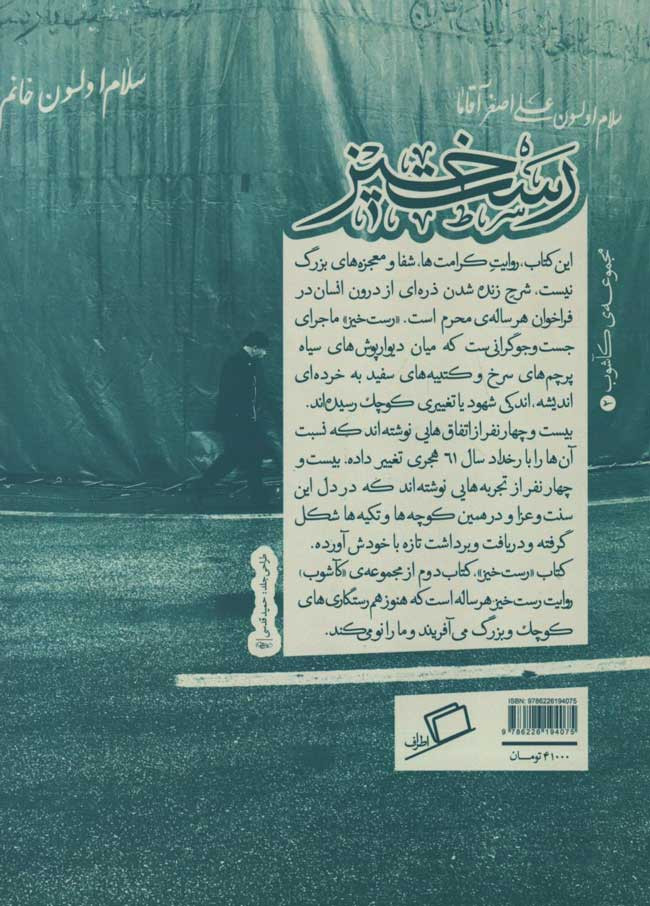 سلام اولسون خانم
سلام اولسون علی اصغر آقاما
رست‌خیز
مجموعه‌ی کآشوب ۲
این کتاب، روایتِ کرامت‌ها، شفا و معجزه‌های بزرگ
نیست، شرح زنده شدن ذره‌ای از درون انسان در
فراخوان هر ساله‌ی محرم است. «رست‌خیز» ماجرای
جست‌وجوگرانی‌ست که میان دیوارپوش‌های سیاه
پرچم‌های سرخ و کتیبه‌های سفید به خرده‌ای
اندیشه، اندکی شهود یا تغییری کوچک رسیده‌اند.
بیست و چهار نفر از اتفاق‌هایی نوشته‌اند که نسبت
آن‌ها را با رخداد سال ۶۱ هجری تغییر داده. بیست و
چهار نفر از تجربه‌هایی نوشته‌اند که در دل این
سنت و عزا و در همین کوچه‌ها و تکیه‌ها شکل
گرفته و دریافت و برداشت تازه با خودش آورده.
کتاب «رست‌خیز»، کتاب دوم از مجموعه‌ی «کآشوب»
روایت رست‌خیز هرساله است که هنوز هم رستگاری‌های
کوچک و بزرگ می‌آفریند و ما را نو می‌کند.
طراحی جلد: حمید قدسی
اطراف
ISBN: 9786226194075
9 786226 194075
۴۱۰۰۰ تومان